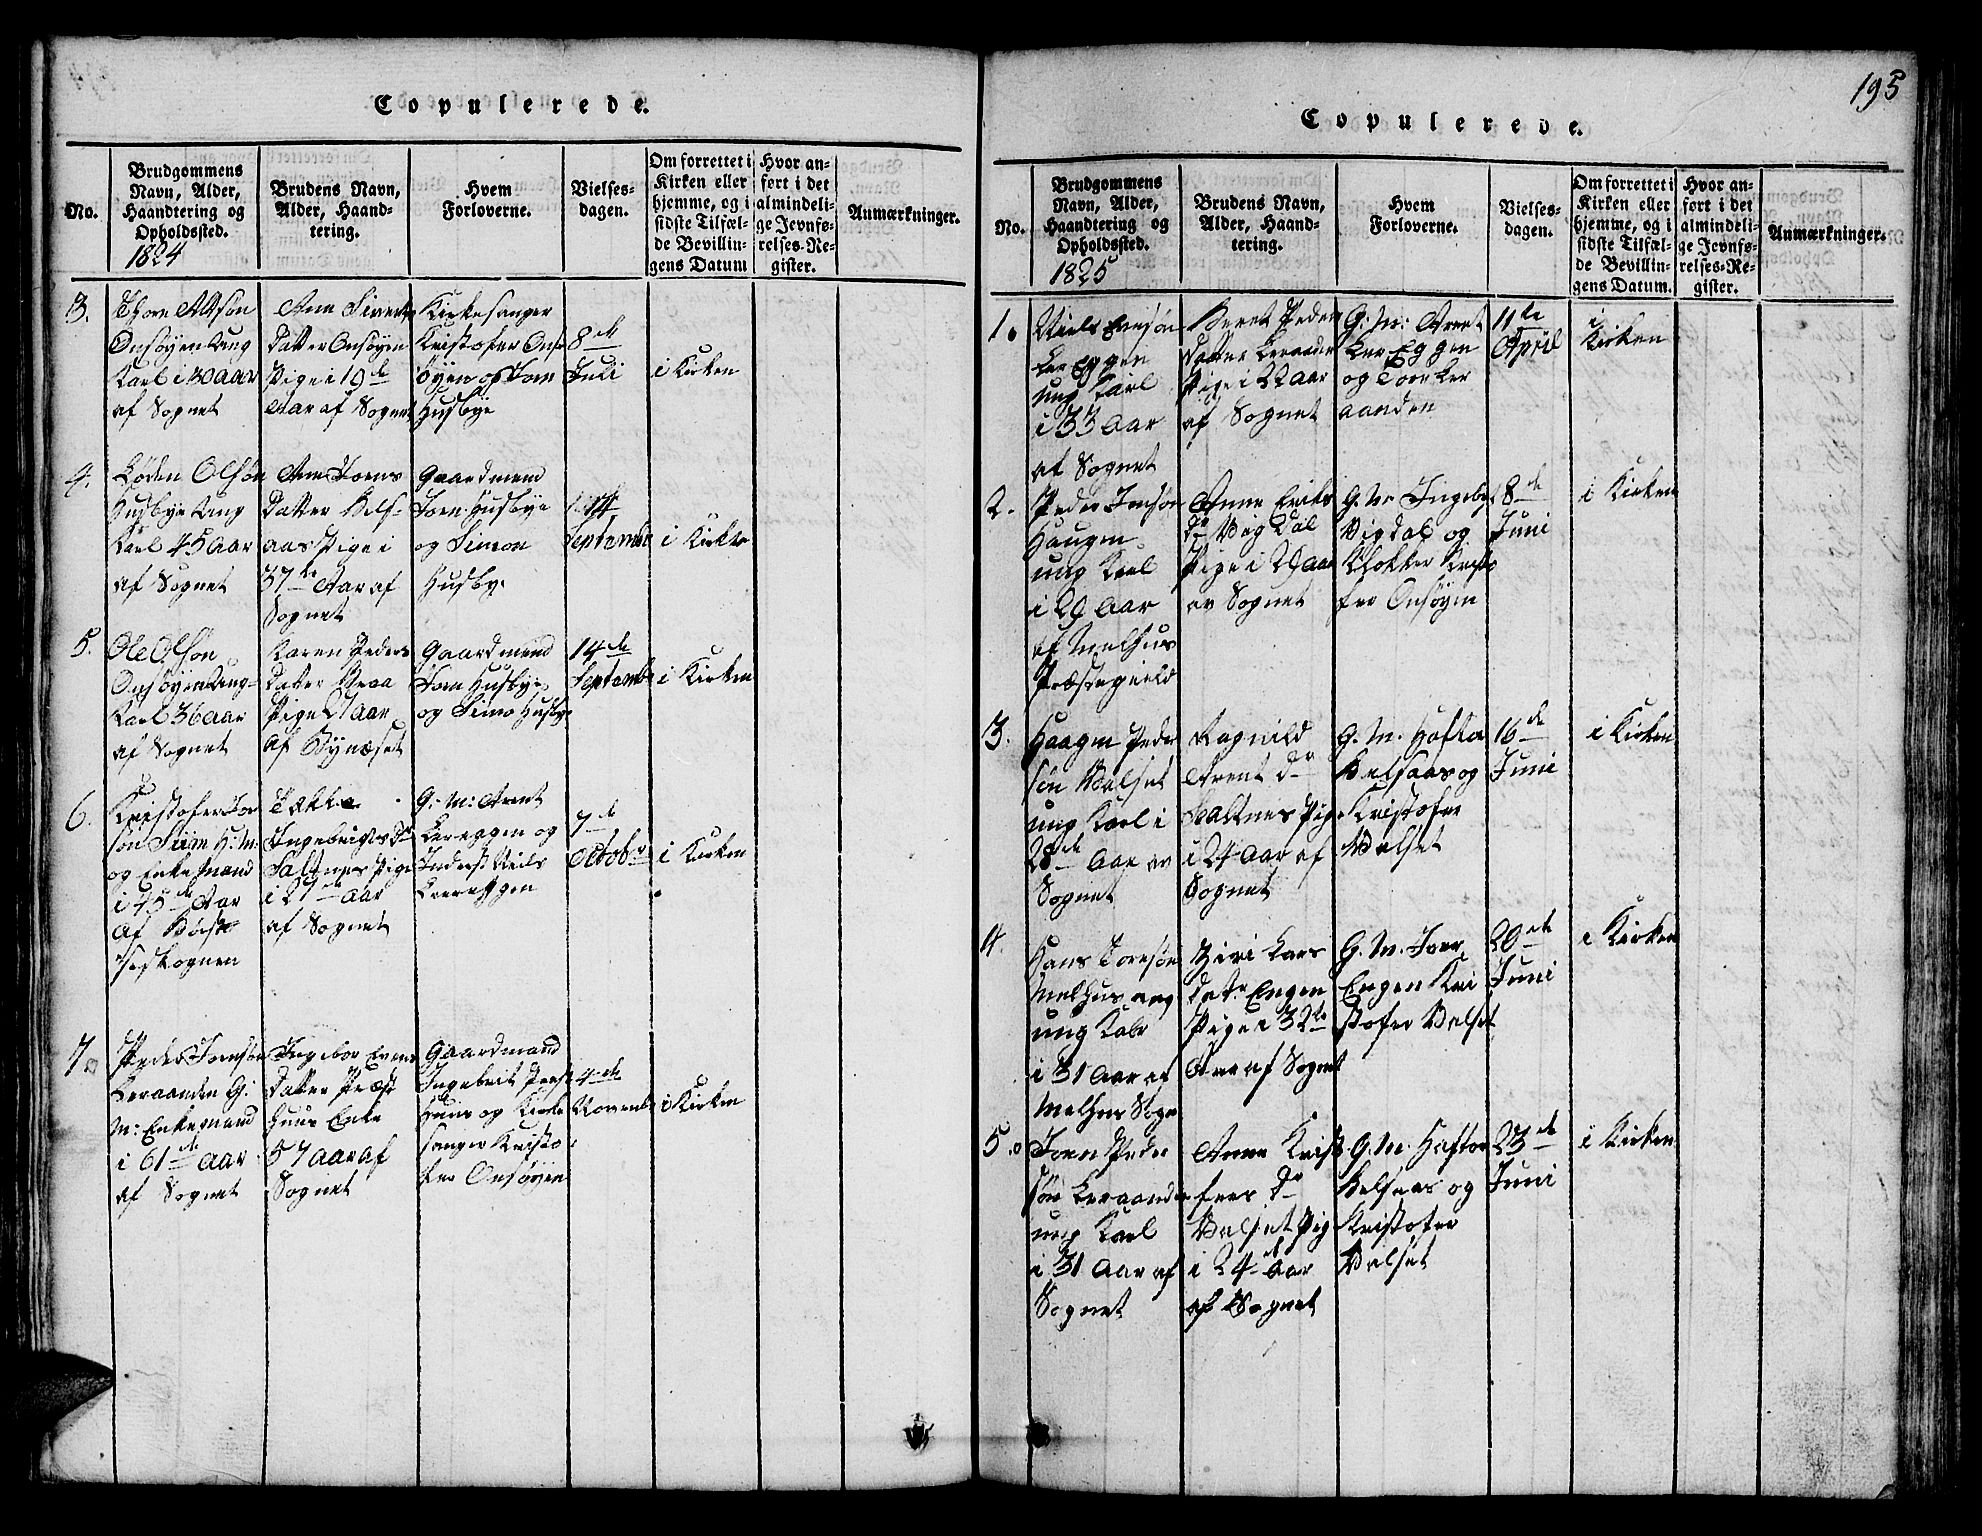 Copulerede.
No.
Brudgommens
Navn, Alder,
Haandtering og
Opholdssted.
1824
Brudens Navn,
Alder, Haand-
tering.
Hvem
Forloverne.
Vielses-
dagen.
Om forrettet i
Kirken eller
hjemme, og i
sidste Tilfæl-
de Bevillin-
gens Datum
Hvor an-
ført i det
almindeli-
ge Jevnfø-
relses-Re-
gister.
Anmærkninger.
3.
Onsøyen Ung
Karl i 30 aar
af Sognet
Ane Siverts
Datter Onsøyen
Pige i 19 de
Aar af Sognet
Kirkesanger
Kristofer Ons
øyen og Joen
Husbye
8 de
Juli
i Kirken
4.
Loden Olsøn
Husbye Ung
Karl 45 aar
af Sognet
Ane Joens
Datter Kels-
aas Pige i
37 te Aar af
Sognet
Gaardmend
Joen Husbye
og Simon
Husby.
September
i Kirken
5.
Ole Olsøn
Onsøyen Ung-
Karl 36 aar
af Sognet
Karen Peders
Datter Braa
Pige 27 aar
Af Bynæset
Gaardmend
Joen Husbye
og Simo Husby
14 de
Septemb
i Kirken
6.
Kristofer Jon
søn Siim H: M:
og Enkemand
i 45 de Aar
Af Børse
Ingebrigts Dr
Saltnes Pige
i 27 de aar
af Sognet
G: M: Arent
Lereggen og
Inderst Niels
Leereggen
7 de
Octobr
i Kirken
7.
Peder Joensøn
Leraanden G:
M: Enkemand
i 61 de Aar
af Sognet
Ingebor Evens
Datter Præst
huus Enke
57 aar af
Sognet
Gaardmand
Ingebrit Præst
huus og Kirke
sanger Kristo
fer Onsøyen
4 de
Novemb
i Kirken
195
Copulerede.
No.
Brudgommens
Navn, Alder,
Haandtering og
Opholdssted.
1825
Brudens Navn,
Alder, Haand-
tering.
Hvem
Forloverne.
Vielses-
dagen.
Om forrettet i
Kirken eller
hjemme, og i
sidste Tilfæl-
de Bevillin-
gens Datum.
Hvor an-
ført i det
almindeli-
ge Jevnfø-
relses-Re-
gister.
Anmærkninger.
1.
Niels Ensøn
Ler Eggen
ung Karl
i 33 Aar
af Sognet
Beret Peders
Datter Leraanden
Pige i 22 Aar
af Sognet
G: M: Arent
Ler Eggen
og Toer Ler
aanden
11 te
April
i
Kirken
2.
Peder Jensøn
Haugen
ung Karl
i 29 Aar
af Melhus
Præstegield
Anne Eriks
Dr Vig Dal
Pige i 29 aar
av Sognet
G. M Ingebr
Vigdal og
Klokker Kristo
fer Onsøyen
8 de
Juni
i Kirken
3.
Haagen Peder
søn Valset
ung Karl i
28 de Aar av
Sognet
Ragnild
Arent Dr
Saltnes Pig
i 24 Aar af
Sognet
G. M. Hafto
Kelsaas og
Kristofer
Valset
16 de
Juni
i Kirken
4.
Hans Toresøn
Melhus
ung Kabr
i 31 Aar af
Melhus Sogn
Ziri Lars
datr Engen
Pige i 32 te
Aar af Sognet
G. M. Iver
Engen Kri
stofer Valset
20 de
Juni
i Kirken
5.
Joen Peder
søn Leraanden
ung Karl
i 31 Aar af
Sognet
Anne Krist
fers Dr
Valset Pig
i 24 de Aar
af Sognet
G. M. Hafto
Kelsaas og
Kristofer
Valset
23 de
Juni
i Kirken